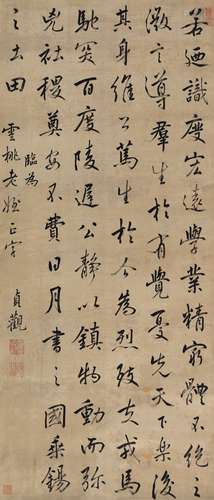 若廼識度宏遠學業精窮體不絕之
微言導羣生於有覺憂先天下樂後
其身維公篤生於今為烈戎馬
馳突百度陵遲公靜以鎮物動而弥
光社稷奠安不費日月書之國乘錫
之土田
臨為
雲桃老姪正字
貞觀